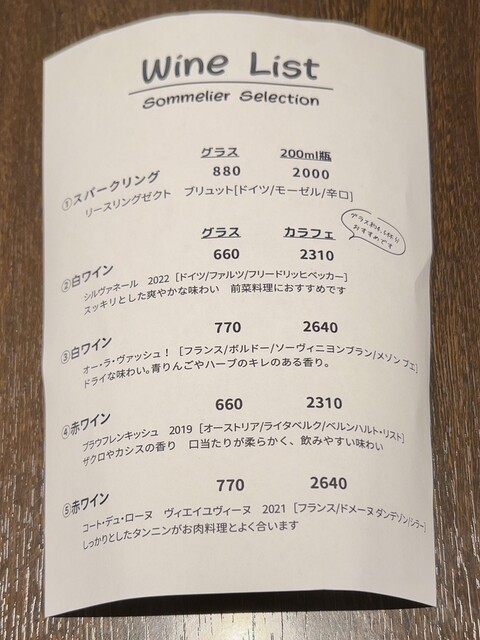 Wine List
Sommelier Selection
グラス 200ml瓶
①スパークリング 880 2000
リースリングゼクト ブリュット[ドイツ/モーゼル/辛口]
グラス カラフェ
おすすめです
②白ワイン 660 2310
シルヴァネール 2022 [ドイツ/ファルツ/フリードリッヒベッカー]
スッキリとした爽やかな味わい 前菜料理におすすめです
③白ワイン 770 2640
オー・ラ・ヴァッシュ! [フランス/ボルドー/ソーヴィニヨンブラン/メゾン ブエ]
ドライな味わい。青りんごやハーブのキレのある香り。
④赤ワイン 660 2310
ブラウフレンキッシュ 2019 [オーストリア/ライタベルク/ベルンハルト・リスト]
ザクロやカシスの香り 口当たりが柔らかく、飲みやすい味わい
⑤赤ワイン 770 2640
コート・デュ・ローヌ ヴィエイユヴィーヌ 2021 [フランス/ドメーヌ ダンデゾン/シラー]
しっかりとしたタンニンがお肉料理とよく合います